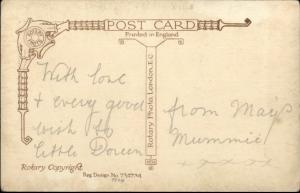 POST CARD
Printed in England
With love
+ every good
wish to
little Doreen
Rotary Photo, London, E.C.
from May's
Mummie
+ x x x x
Rotary Copyright.
Reg Design No.